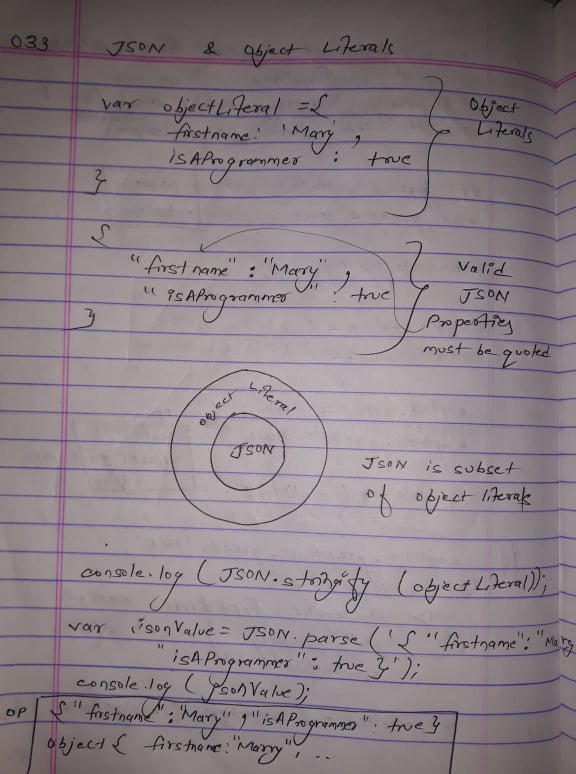 033 JSON & Object Literals
var objectLiteral = {
firstname: 'Mary',
isAProgrammer : true
}
Object
Literals
{
"firstname" : "Mary",
"isAProgrammer" : true
}
Valid
JSON
Properties
must be quoted
Object Literal
JSON
JSON is subset
of object literals
console.log (JSON.stringify (objectLiteral));
var jsonValue = JSON.parse ('{ "firstname": "Mary
"isAProgrammer": true }');
console.log (jsonValue);
OP
{ "firstname" : "Mary", "isAProgrammer" : true }
object { firstname: "Mary", ..